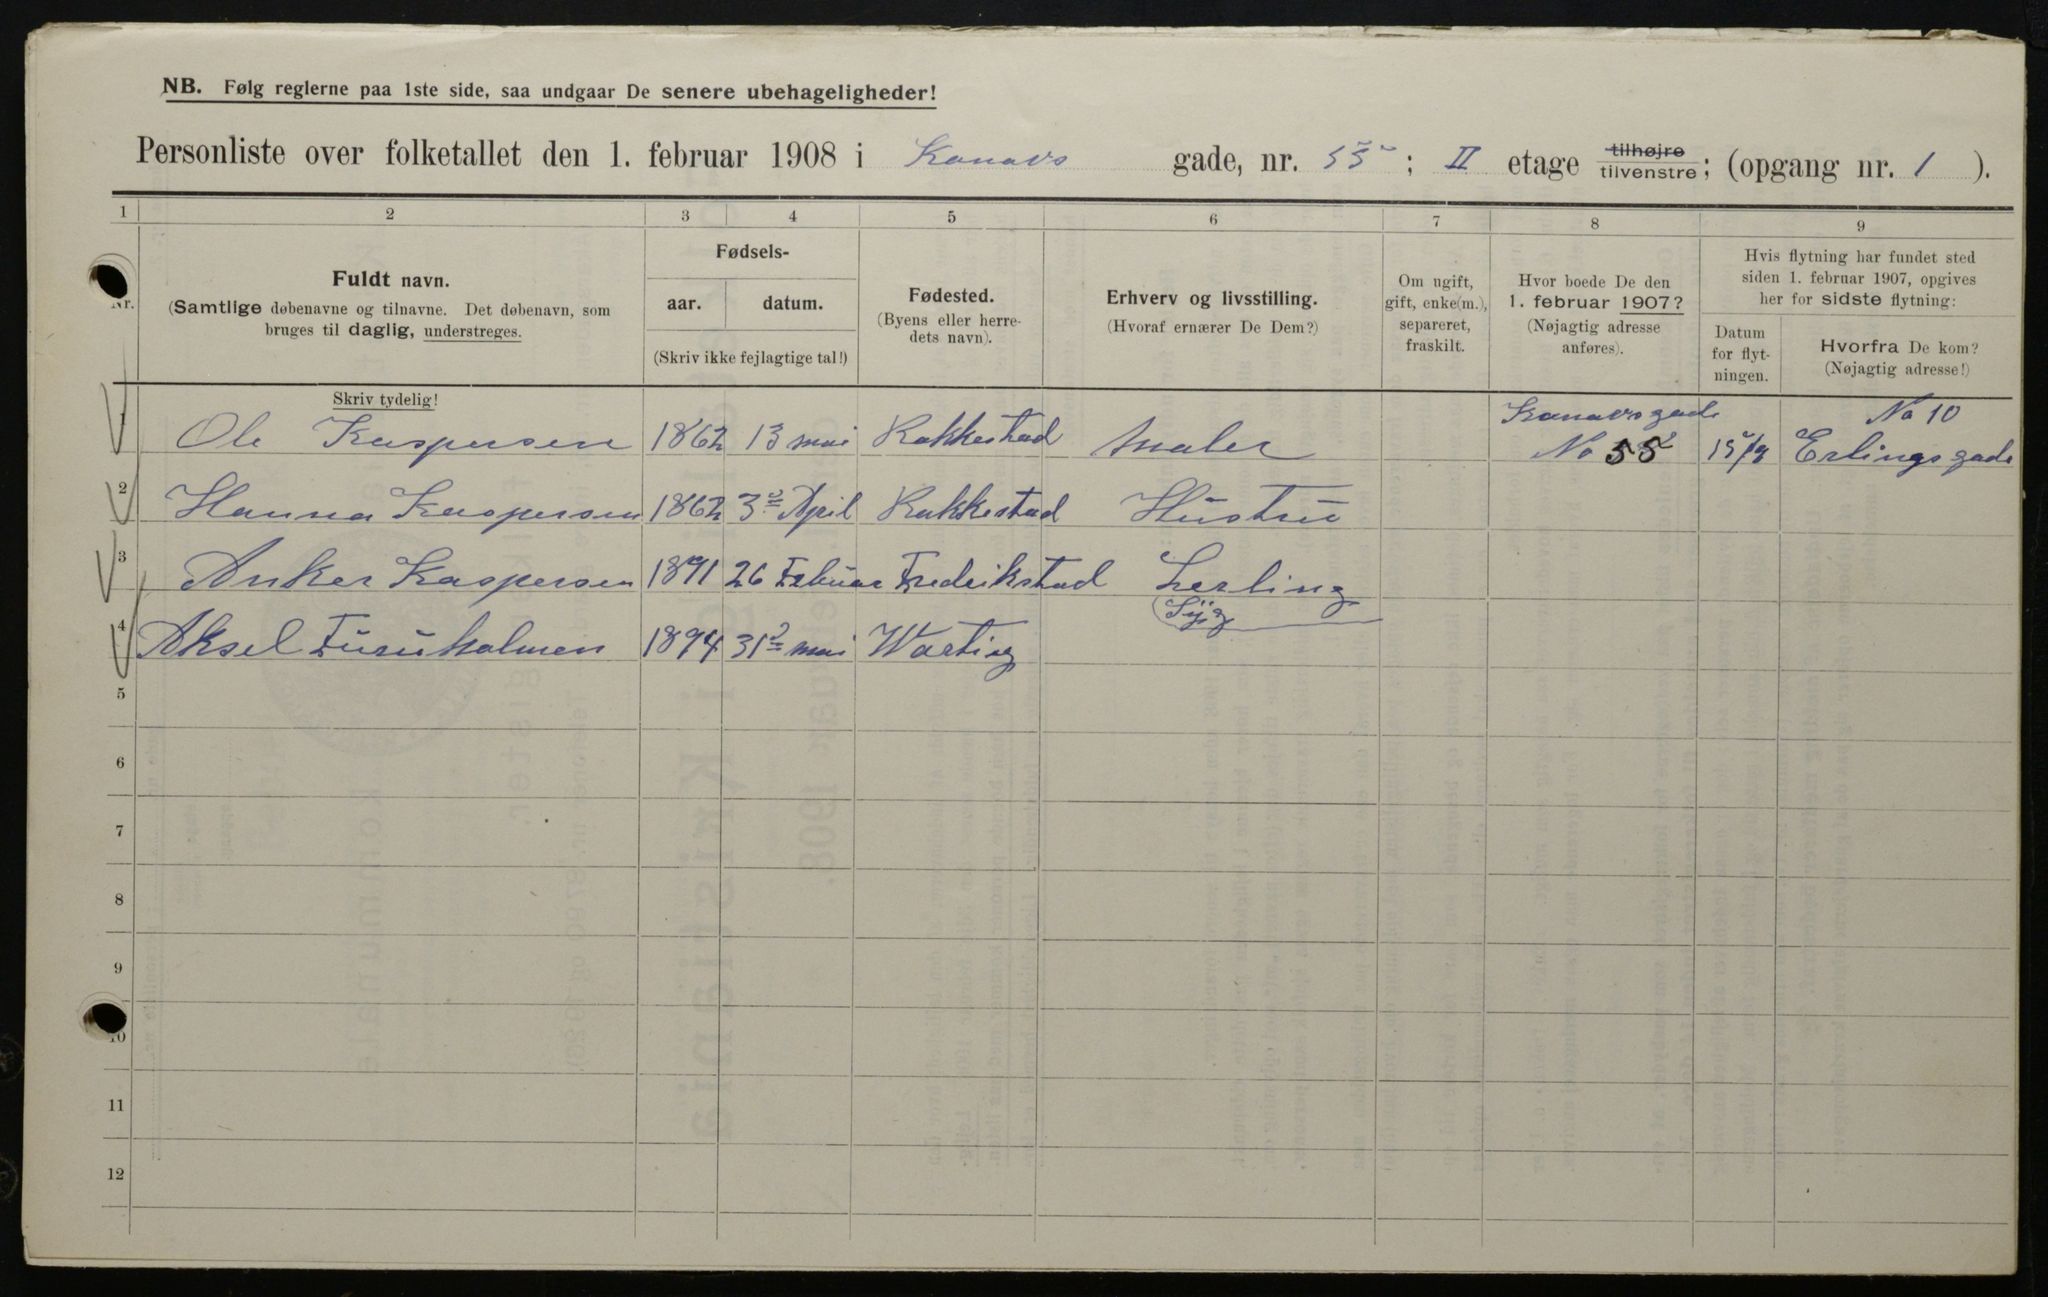 NB. Følg reglerne paa 1ste side, saa undgaar De senere ubehageligheder!
Personliste over folketallet den 1. februar 1908 i Kanavs gade, nr. 55; II etage tilhøjre tilvenstre; (opgang nr. 1).
1 2 3 4 5 6 7 8 9
Nr.
Fuldt navn.
(Samtlige døbenavne og tilnavne. Det døbenavn, som
bruges til daglig, understreges.
Skriv tydelig!
Fødsels-
aar. datum.
(Skriv ikke fejlagtige tal!)
Fødested.
(Byens eller herre-
dets navn).
Erhverv og livsstilling.
(Hvoraf ernærer De Dem?)
Om ugift,
gift, enke(m.),
separeret,
fraskilt.
Hvor boede De den
1. februar 1907?
(Nøjagtig adresse
anføres).
Hvis flytning har fundet sted
siden 1. februar 1907, opgives
her for sidste flytning:
Datum
for flyt-
ningen.
Hvorfra De kom?
(Nøjagtig adresse!)
Kanavsgade No 10
1 Ole Kaspersen 1862 13 mai Rakkestad Maler No 55 15/9 Erlingsgade
2 Hanna Kaspersen 1862 3 April Rakkestad Hustru
3 Anker Kaspersen 1891 26 Febuar Fredrikstad Lerling
(Syg
4 Aksel Furuholmen 1894 31 mai Warting
5
6
7
8
9
10
11
12